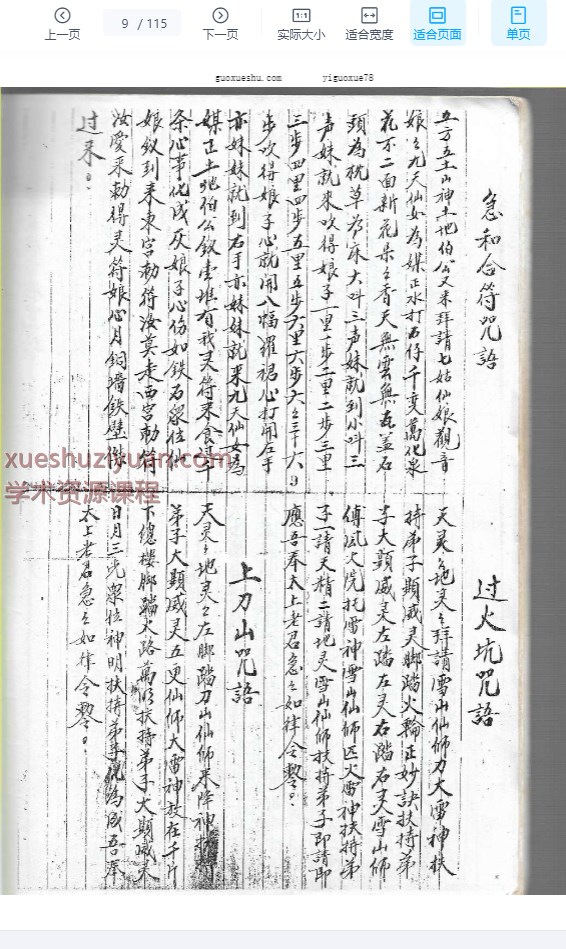 上一页
9 / 115
下一页
实际大小
适合宽度
适合页面
单页
guoxueshu.com yiguoxue78
急和合符咒語
五方五土山神土地伯公又来拜請七姑仙娘觀音
娘々九天仙女為媒正水打石仔千变萬化泉
花不二面新花朵々香天無雲無盖石
頭為枕草為床大叫三声妹就到小叫三
声妹就来吹得娘子一里一步二里二步三里
三步四里四步五里五步六里六步六々三十六
步吹得娘子心就開八幅羅裙心打開左手
亦妹妹就到右手亦妹妹就来九天仙女為
媒正土地伯公 有我灵符来食
条心事化成灰娘子心伤如鉄石眾位仙
娘 到来東宮勅符汝莫走西宮勅符
汝愛来勅得灵符娘心月銅墙鉄壁
过来。
过火坑咒語
天灵々地灵々拜請雪山仙师刀大雷神扶
持弟子顯威灵脚踏火輪正妙訣扶持弟
子大顯威灵左踏左灵右踏右灵雪山仙师
傅 火院托雷神雪山仙师 火雷神扶持弟
子一請天精二請地灵雪山仙师扶持弟子即請即
應吾奉太上老君急々如律令
上刀山咒語
天灵々地灵々左脚踏刀山仙师来降神
弟子大顯威灵五更仙师大雷神放在千斤
下總樓脚踏火路萬 扶持弟子大顯威
日月三光眾位神明扶持弟子 為 吾奉
太上老君急々如律令
xueshuziyuan.com
学术资源课程